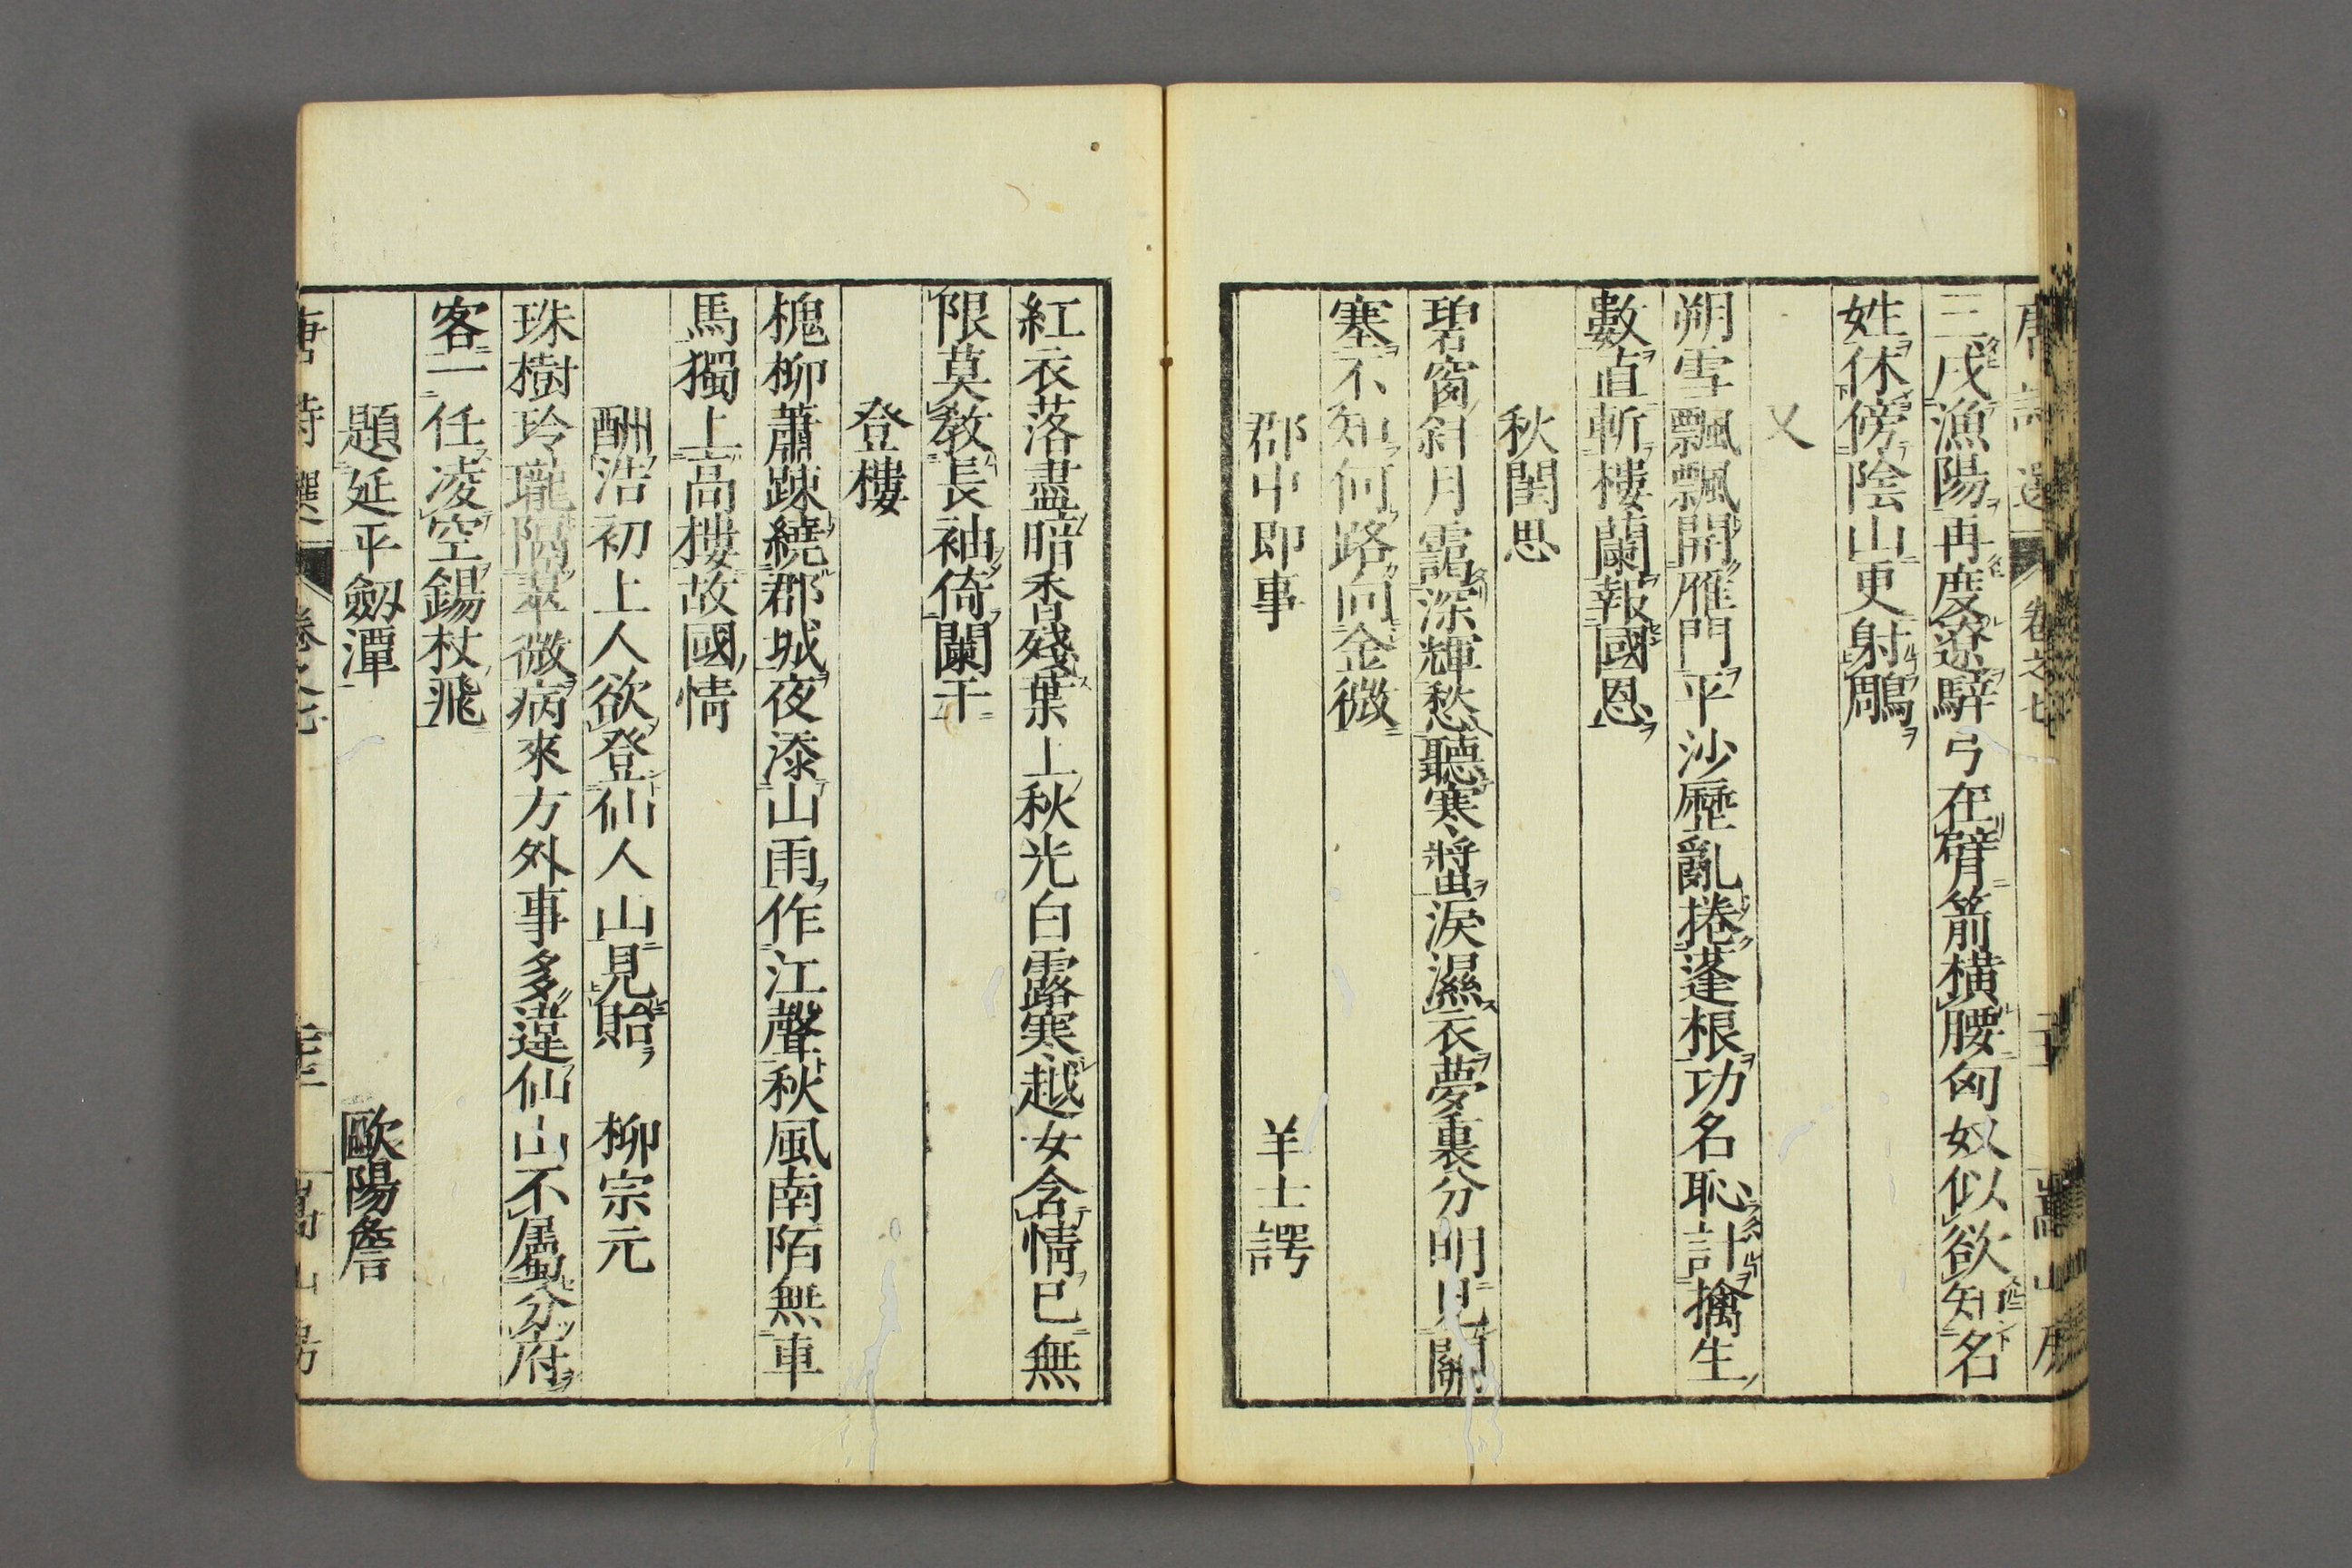 唐詩選 卷之七
三戍漁陽再度遼騂弓在臂箭横腰匈奴似欲知名
姓休傍陰山更射鵰
又
朔雪飄飄開雁門平沙歷亂捲蓬根功名恥計擒生
數直斬樓蘭報國恩
秋閨思
碧窗斜月靄深輝愁聽寒螿淚濕衣夢裏分明見關
塞不知何路向金微
郡中即事 羊士諤
紅衣落盡暗香殘葉上秋光白露寒越女含情已無
限莫教長袖倚闌干
登樓
槐柳蕭踈繞郡城夜添山雨作江聲秋風南陌無車
馬獨上高樓故國情
酬浩初上人欲登仙人山見貽 柳宗元
珠樹玲瓏隔翠微病來方外事多違仙山不屬分府
客一任凌空錫杖飛
題延平劔潭 歐陽詹
唐詩選 卷之七